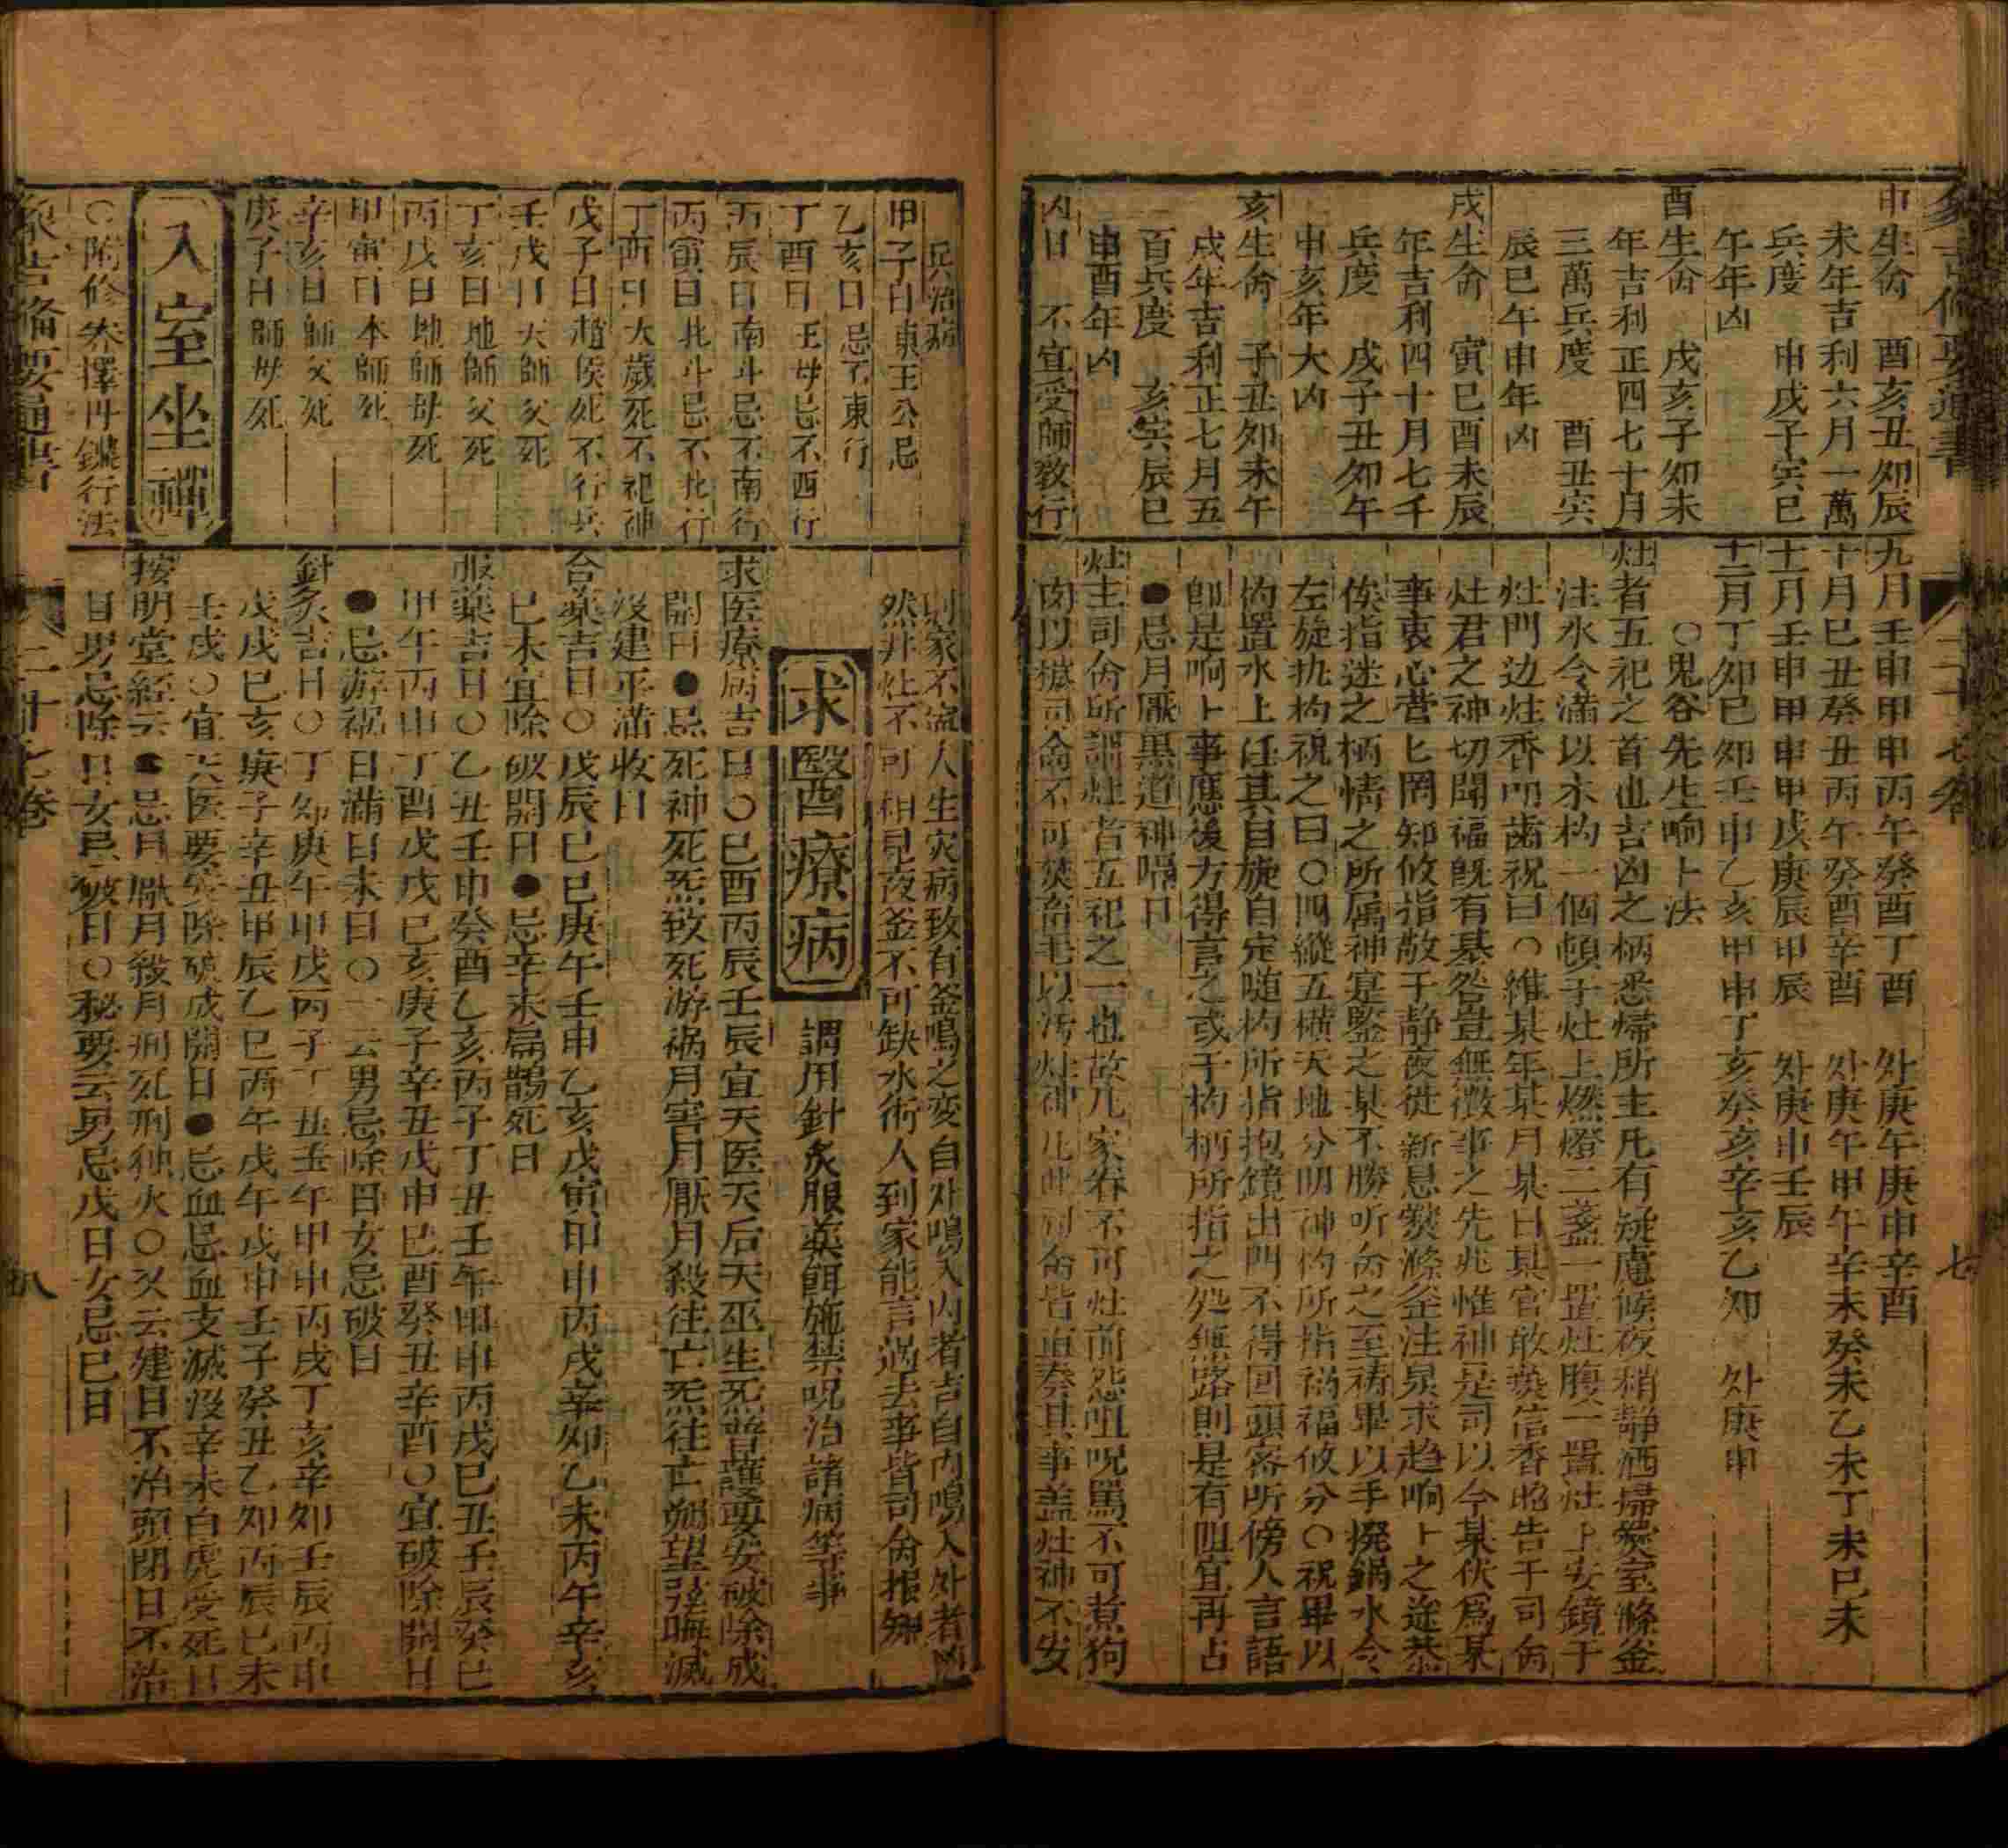 象吉俻要通書
二十七卷
七
申生命　酉亥丑卯辰
未年吉利六月一萬
兵度　申戌子寅巳
午年凶
酉生命　戌亥子卯未
年吉利正四七十月
三萬兵度　酉丑寅
辰巳午申年凶
戌生命　寅巳酉未辰
年吉利四十月七千
兵度　戌子丑卯午
申亥年大凶
亥生命　子丑卯未午
戌年吉利正七月五
百兵度　亥寅辰巳
申酉年凶
凶日　不宜受師敎行
九月壬申甲申丙午癸酉丁酉　外庚午庚申辛酉
十月巳丑癸丑丙午癸酉辛酉　外庚午甲午辛未癸未乙未丁未巳未
十一月壬申甲申甲戌庚辰甲辰　外庚申壬辰
十二月丁卯巳卯壬申乙亥甲申丁亥癸亥辛亥乙卯　外庚申
○鬼谷先生响卜法
灶者五祀之首也吉凶之柄悉歸所主凡有疑慮候夜稍靜洒掃爨室滌釜
注水令滿以木杓一個頓于灶上燃燈二盞一置灶腹一置灶上安鏡于
灶門边炷香叩齒祝曰○維某年某月某日某官敢爇信香昭告于司命
灶君之神切聞福旣有基咎豈無徵事之先兆惟神是司以今某伏爲某
事衷心營匕罔知攸指敬于静夜徙新息爨滌釜注泉求趋响卜之途恭
俟指迷之柄情之所属神寔監之某不勝听命之至祷畢以手撥鍋水令
左旋执杓祝之曰○四縱五橫天地分明神杓所指禍福攸分○祝畢以
杓置水上任其自旋自定随杓所指抱鏡出門不得回頭密听傍人言語
卽是响卜事應後方得言之或于杓柄所指之処無路則是有阻宜再占
●忌月厭黒道神嗝日
灶主司命所謂灶者五祀之一也故凡家眷不可灶前怨咀呪罵不可煮狗
肉以穢司命不可焚畜毛以汚灶神凡此司命皆直奏其事盖灶神不安
兵治病
甲子日東王公忌
乙亥日　忌不東行
丁酉日　王母忌不西行
丙辰日南斗忌不南行
丙寅日　北斗忌不北行
丁酉日大歲死不祀神
戊子日趙侯死不行兵
壬戌日　天師父死
丁亥日　地師父死
丙戌日　地師母死
甲寅日　本師死
辛亥日　師父死
庚子日　師母死
入室坐禪
○附修养擇丹鑱行法
則家不寧人生灾病致有釜鳴之变自外鳴入内者吉自内鳴入外者凶
然井灶不可相見夜釜不可缺水術人到家能言過去事皆司命报知
求醫療病　謂用針灸服薬餌施禁呪治諸病等事
求医療病吉日○巳酉丙辰壬辰宜天医天后天巫生炁普護要安破除成
開日●忌死神死炁致死游祸月害月厭月殺往亡炁往亡朔望弦晦滅
没建平滿收日
合薬吉日○戊辰巳巳庚午壬申乙亥戊寅甲申丙戌辛卯乙未丙午辛亥
巳未宜除破開日●忌辛未扁鵲死日
服薬吉日○乙丑壬申癸酉乙亥丙子丁丑壬午甲申丙戌巳丑壬辰癸巳
甲午丙申丁酉戊戌巳亥庚子辛丑戊申巳酉癸丑辛酉○宜破除開日
●忌游祸日滿日未日○一云男忌除日女忌破日
針灸吉日○丁卯庚午甲戌丙子丁丑壬午甲申丙戌丁亥辛卯壬辰丙申
戊戌巳亥庚子辛丑甲辰乙巳丙午戊午戊申壬子癸丑乙卯丙辰巳未
壬戌○宜天医要安除破成開日●忌血忌血支滅没辛未白虎受死日
按明堂經云●忌月厭月殺月刑死刑独火○又云建日不治頭閉日不治
目男忌除日女忌破日○秘要云男忌戊日女忌巳日
象吉俻要通書
二十七卷
八